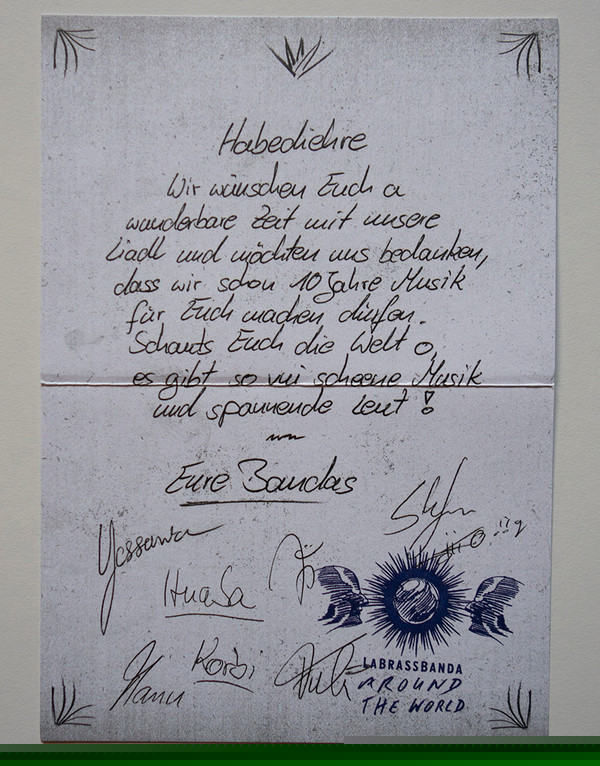 Habediehre
Wir wünschen Euch a
wunderbare Zeit mit unsere
Liadl und möchten uns bedanken,
dass wir schon 10 Jahre Musik
für Euch machen dürfen.
Schauts Euch die Welt o,
es gibt so vui scheene Musik
und spannende Leut!
Eure Bandas
HuaSa
Korbi
Manu
LABRASSBANDA
AROUND
THE WORLD